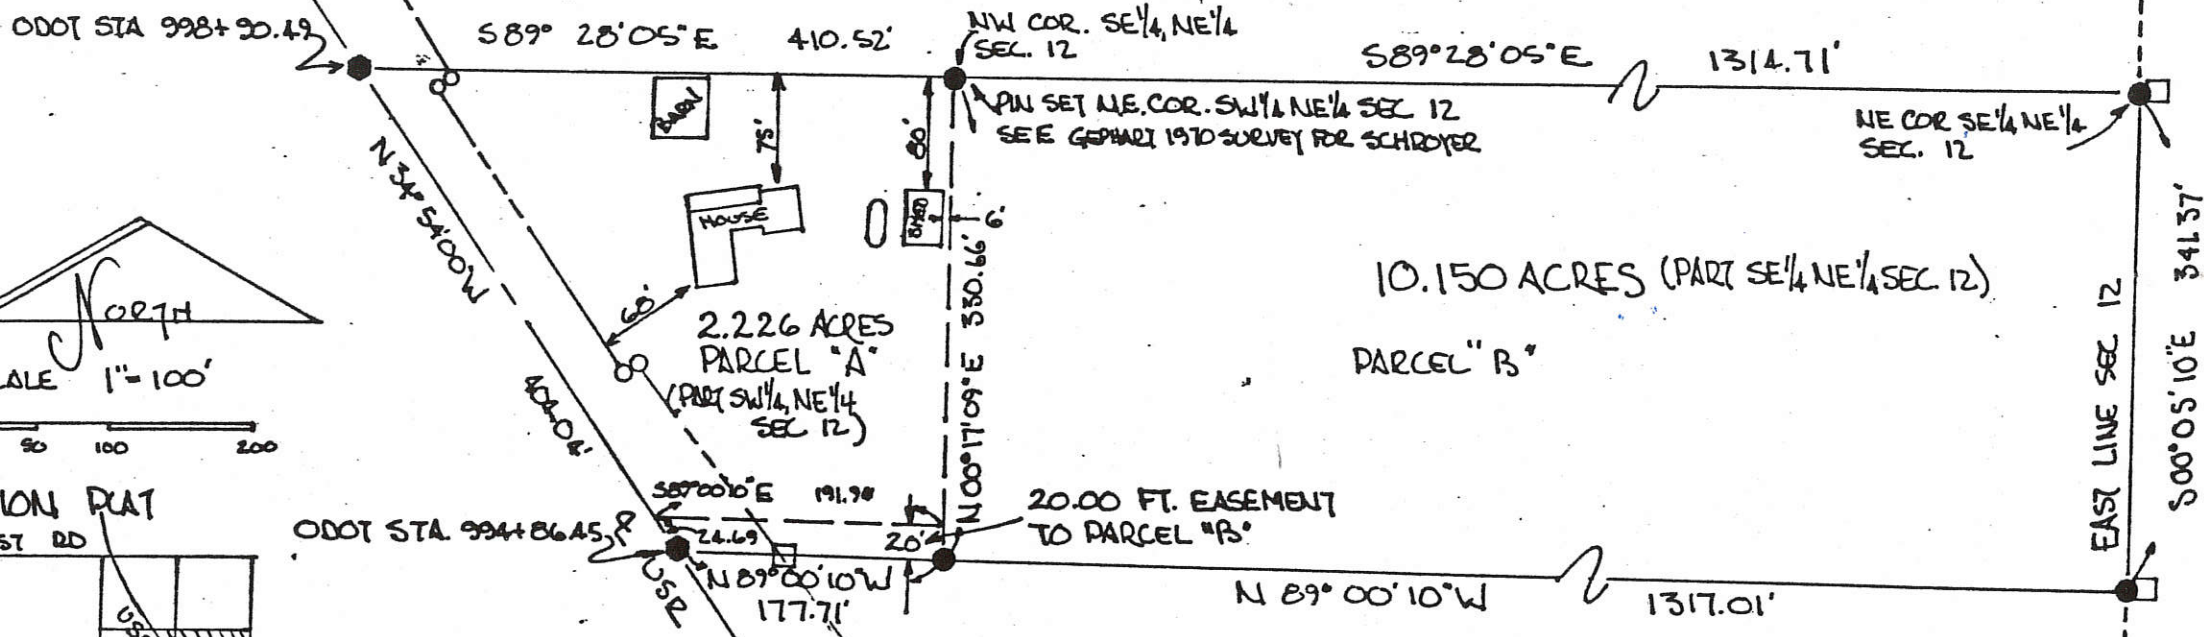 ODOT STA 998+90.49
S89° 28'05"E 410.52'
NW COR. SE¼, NE¼
SEC. 12
S89°28'05"E 1314.71'
BARN
75'
80'
PIN SET N.E. COR. SW¼ NE¼ SEC 12
SEE GEPHART 1970 SURVEY FOR SCHROYER
NE COR SE¼ NE¼
SEC. 12
N 34° 54'00"W
HOUSE
6'
NORTH
1"=100'
50 100 200
68'
2.226 ACRES
PARCEL "A"
(PART SW¼, NE¼
SEC 12)
N 00°17'09"E 330.66'
10.150 ACRES (PART SE¼ NE¼ SEC. 12)
PARCEL "B"
EAST LINE SEC 12
S00°05'10"E 341.37'
404.04'
S89°00'10"E 191.90
ION PLAT
ST RD
ODOT STA. 994+86.45
24.69
20'
20.00 FT. EASEMENT
TO PARCEL "B"
USR
N 89°00'10"W
177.71'
N 89° 00'10"W 1317.01'